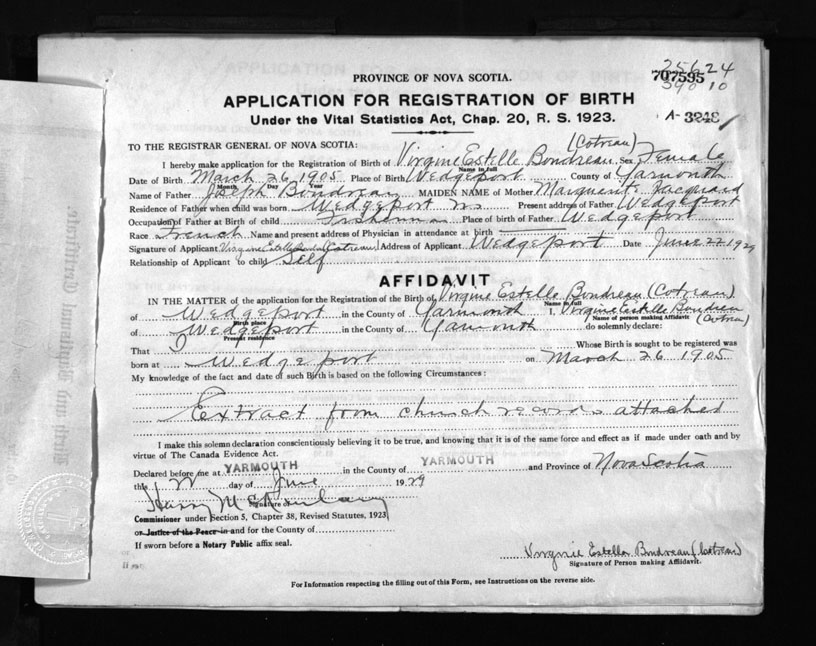 PROVINCE OF NOVA SCOTIA.
25624
707595
39010
APPLICATION FOR REGISTRATION OF BIRTH
Under the Vital Statistics Act, Chap. 20, R. S. 1923.
A-3248
TO THE REGISTRAR GENERAL OF NOVA SCOTIA:
(Cotreau)
I hereby make application for the Registration of Birth of Virginie Estelle Boudreau Sex Female
Name in full
Date of Birth March 26, 1905 Place of Birth Wedgeport County of Yarmouth
Month Day Year
Name of Father Joseph Boudreau MAIDEN NAME of Mother Marguerite Jacquard
Residence of Father when child was born Wedgeport ns Present address of Father Wedgeport
Occupation of Father at Birth of child Fisherman Place of birth of Father Wedgeport
Race French Name and present address of Physician in attendance at birth
Signature of Applicant Virginie Estelle Boudreau (Cotreau) Address of Applicant Wedgeport Date June 22 1929
Relationship of Applicant to child Self
AFFIDAVIT
IN THE MATTER of the application for the Registration of the Birth of Virginie Estelle Boudreau (Cotreau)
Name in full
of Wedgeport in the County of Yarmouth I, Virginie Estelle Boudreau (Cotreau)
Birth place
Name of person making Affidavit
of Wedgeport in the County of Yarmouth do solemnly declare:
Present residence
That I Whose Birth is sought to be registered was
born at Wedgeport on March 26 1905
My knowledge of the fact and date of such Birth is based on the following Circumstances:
Extract from church records attached
I make this solemn declaration conscientiously believing it to be true, and knowing that it is of the same force and effect as if made under oath and by
virtue of The Canada Evidence Act.
Declared before me at YARMOUTH in the County of YARMOUTH and Province of Nova Scotia
this 22 day of June 1929
Harry
Signature of
Commissioner under Section 5, Chapter 38, Revised Statutes, 1923
or Justice of the Peace in and for the County of
If sworn before a Notary Public affix seal.
Virginie Estelle Boudreau (Cotreau)
Signature of Person making Affidavit.
For Information respecting the filling out of this Form, see Instructions on the reverse side.
Birth and Baptismal Certificate